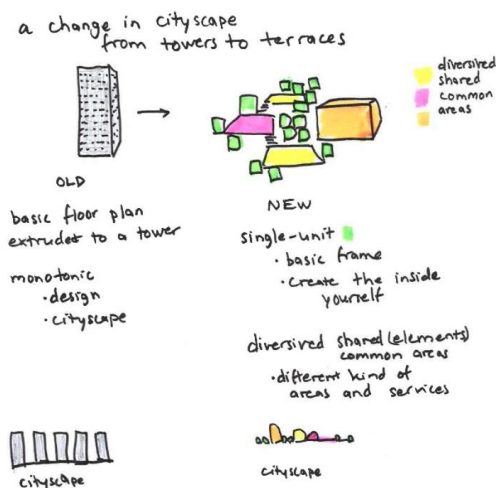 a change in cityscape
from towers to terraces
diversived
shared
common
areas
OLD
NEW
basic floor plan
extruded to a tower
monotonic
• design
• cityscape
single-unit
• basic frame
• create the inside
yourself
diversived shared (elements)
common areas
• different kind of
areas and services
cityscape
cityscape